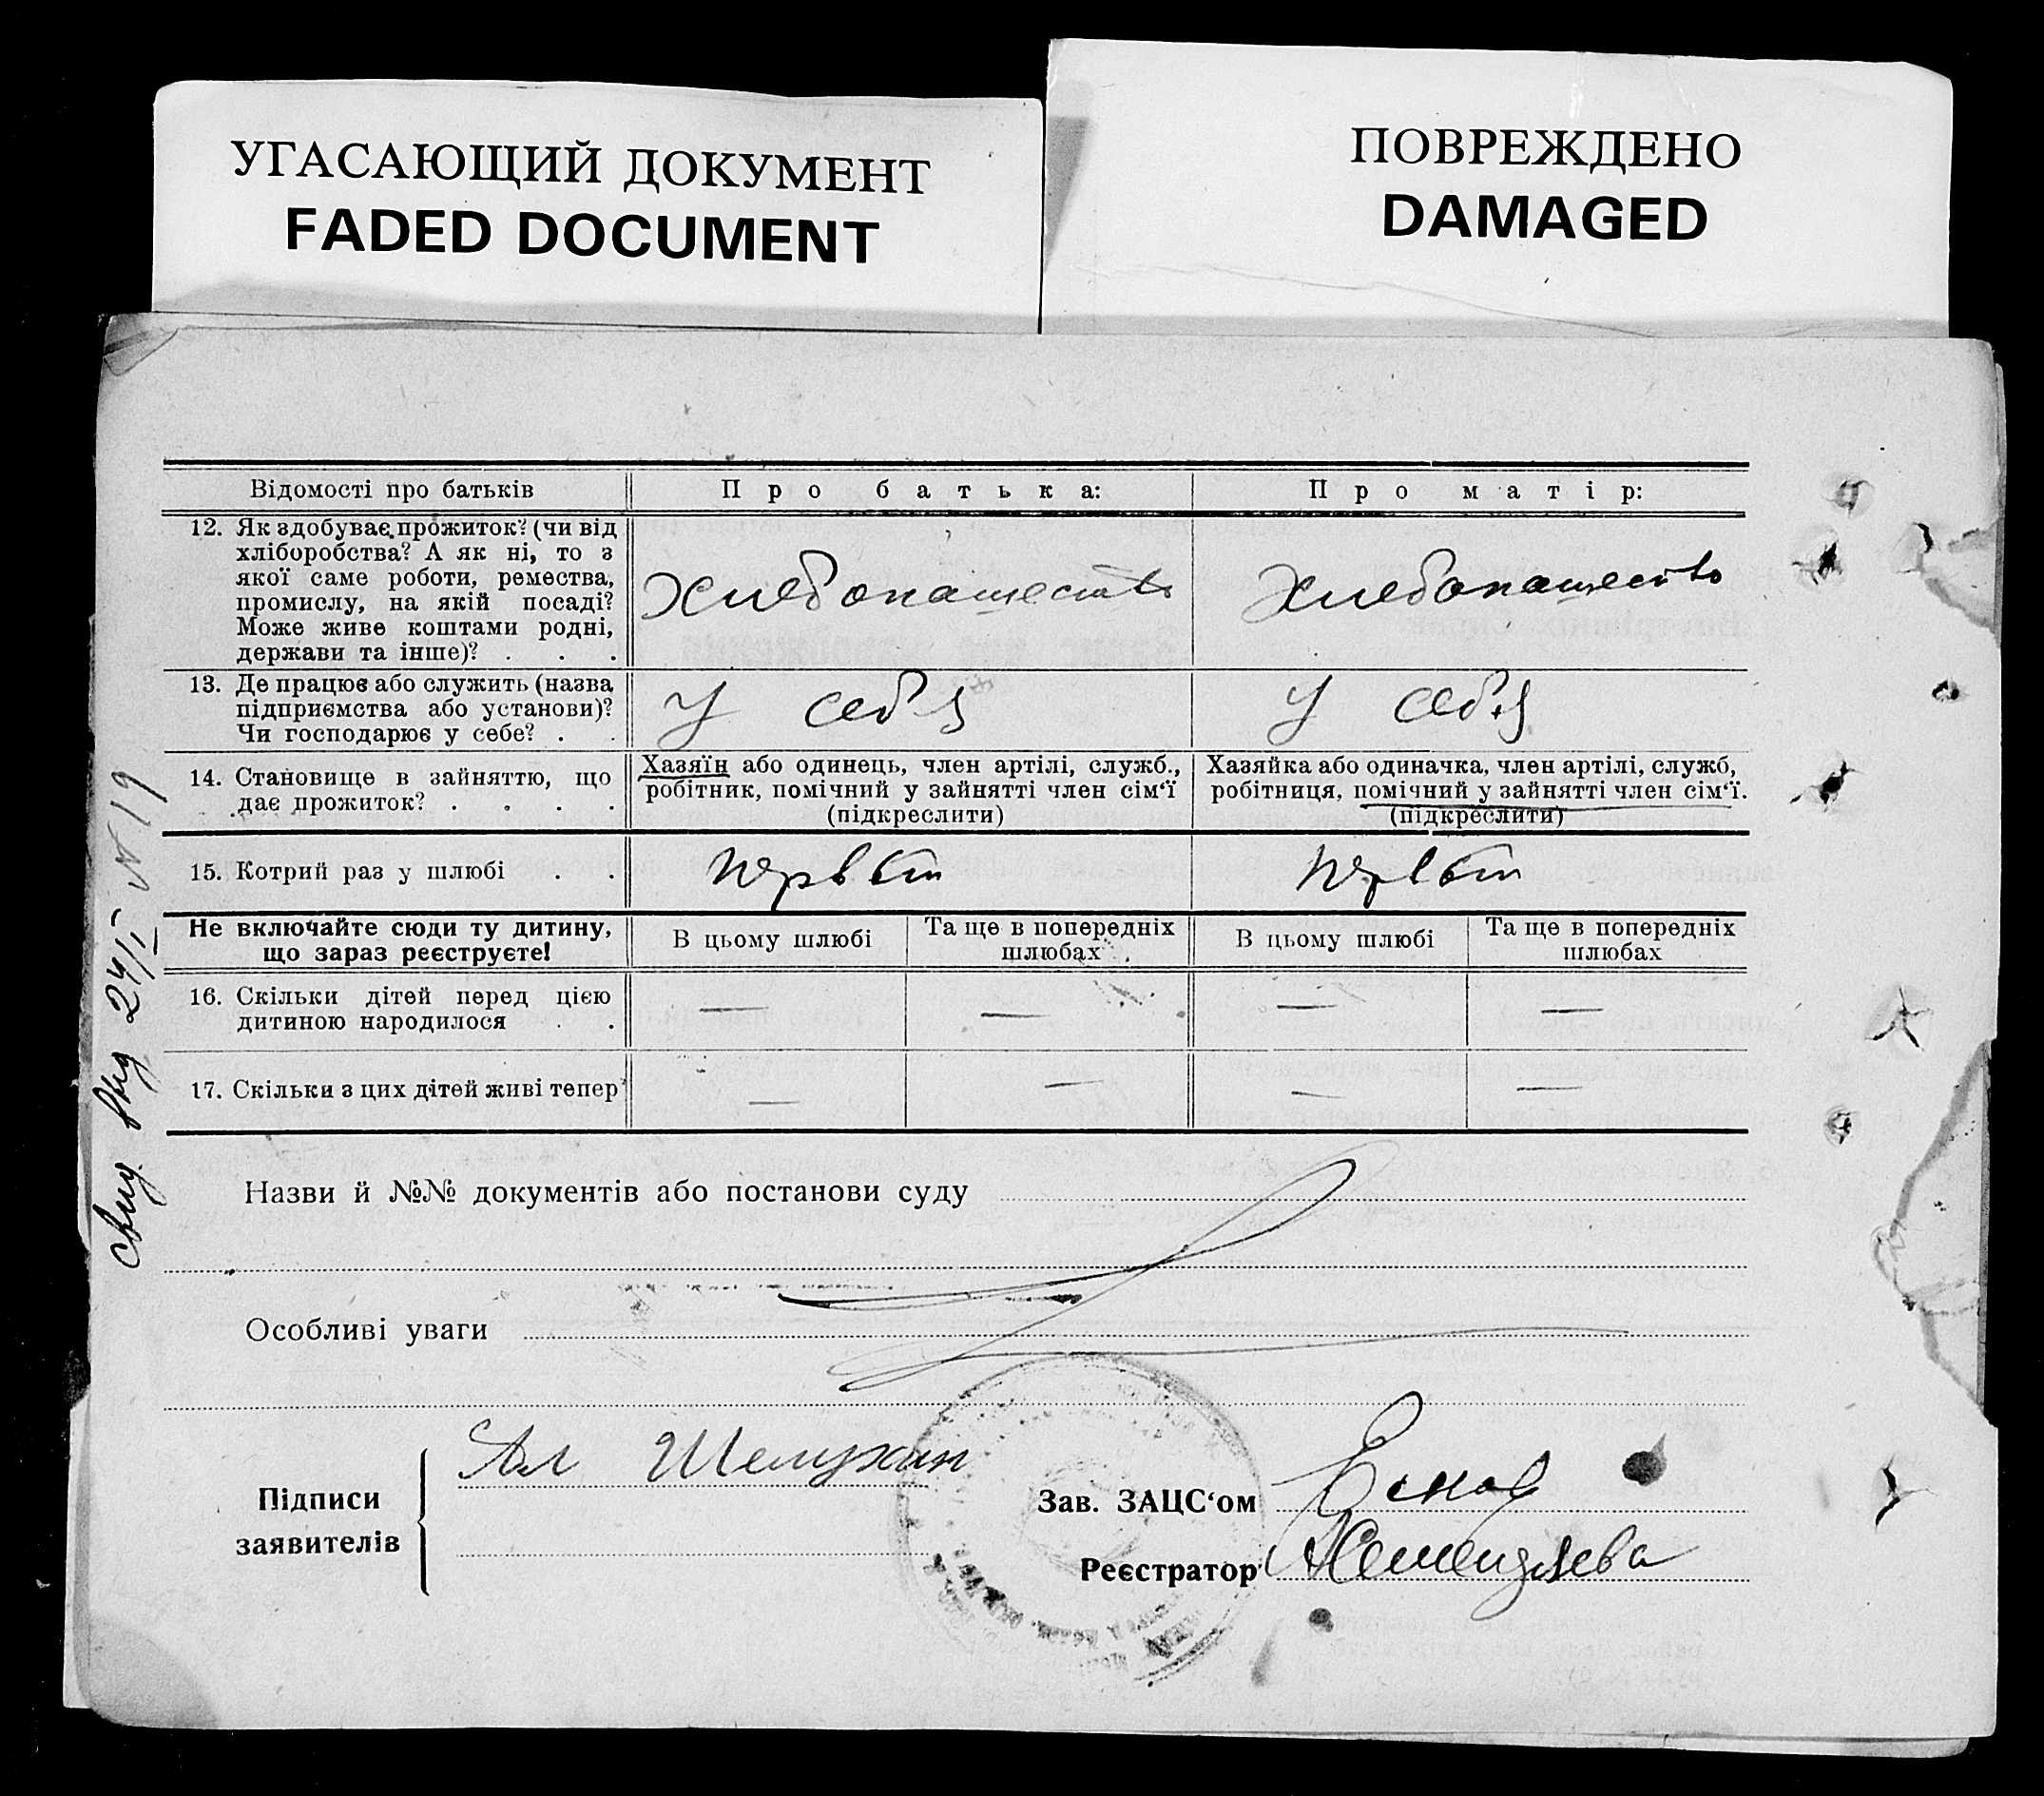 УГАСАЮЩИЙ ДОКУМЕНТ
FADED DOCUMENT
ПОВРЕЖДЕНО
DAMAGED
Відомості про батьків
Про батька:
Про матір:
12. Як здобуває прожиток? (чи від
хліборобства? А як ні, то з
якої саме роботи, ремества,
промислу, на якій посаді?
Може живе коштами родні,
держави та інше)? . . .
Хлебопашество
Хлебопашество
13. Де працює або служить (назва
підприємства або установи)?
Чи господарює у себе? . .
У себя
У себя
14. Становище в зайняттю, що
дає прожиток? . . . .
Хазяїн або одинець, член артілі, служб.,
робітник, помічний у зайнятті член сім‘ї
(підкреслити)
Хазяйка або одиначка, член артілі, служб,
робітниця, помічний у зайнятті член сім‘ї.
(підкреслити)
15. Котрий раз у шлюбі . .
первый
первый
Не включайте сюди ту дитину,
що зараз реєструєте!
В цьому шлюбі
Та ще в попередніх
шлюбах
В цьому шлюбі
Та ще в попередніх
шлюбах
16. Скільки дітей перед цією
дитиною народилося . .
— — — —
17. Скільки з цих дітей живі тепер
— — — —
Свид. выд 24/I N 19
Назви й №№ документів або постанови суду
Особливі уваги
Підписи
заявителів
Ал Шелухин
Зав. ЗАЦС‘ом
Реєстратор